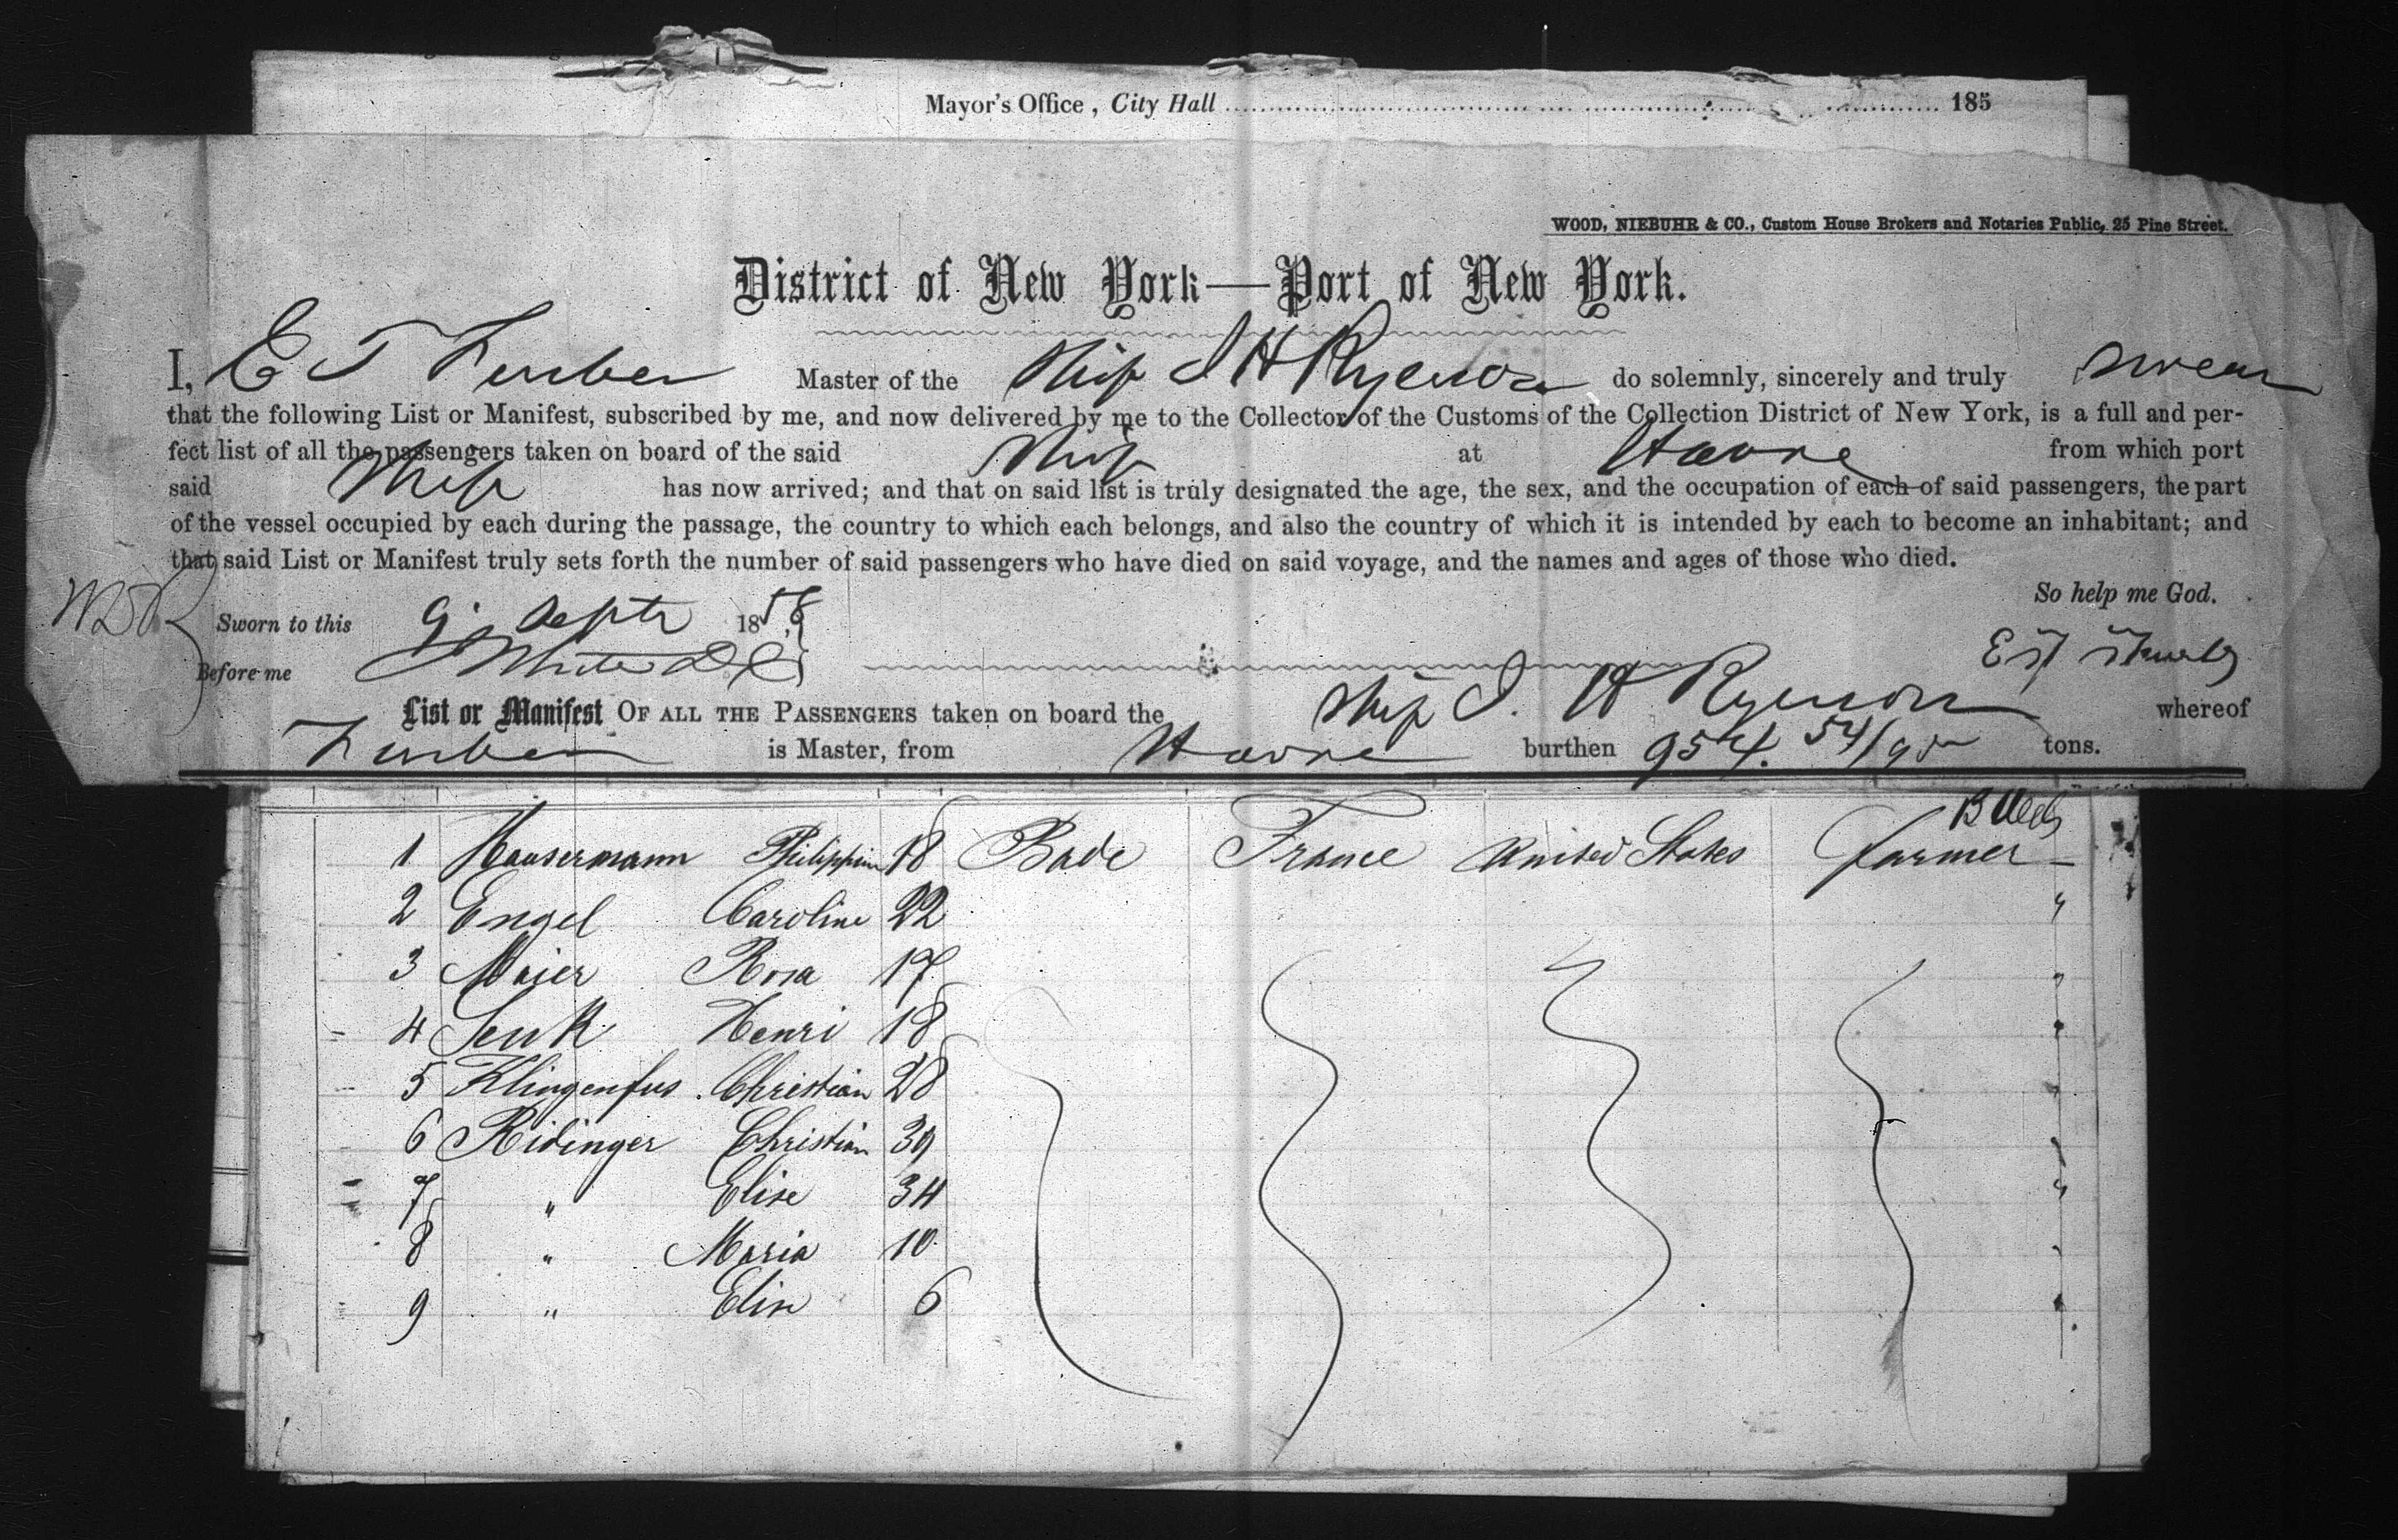 Mayor's Office, City Hall 185
WOOD, NIEBUHR & CO., Custom House Brokers and Notaries Public, 25 Pine Street.
District of New York—Port of New York.
I, E T Furber Master of the Ship J H Ryerson do solemnly, sincerely and truly swear
that the following List or Manifest, subscribed by me, and now delivered by me to the Collector of the Customs of the Collection District of New York, is a full and per-
fect list of all the passengers taken on board of the said Ship at Havre from which port
said Ship has now arrived; and that on said list is truly designated the age, the sex, and the occupation of each of said passengers, the part
of the vessel occupied by each during the passage, the country to which each belongs, and also the country of which it is intended by each to become an inhabitant; and
that said List or Manifest truly sets forth the number of said passengers who have died on said voyage, and the names and ages of those who died.
So help me God.
Sworn to this 9 Septr 1858
Before me White
List or Manifest OF ALL THE PASSENGERS taken on board the Ship J. H Ryerson whereof
Furber is Master, from Havre burthen 954. 54/95 tons.
1 Hausermann Philippine 18 Bade France United States Farmer
2 Engel Caroline 22 "
3 Maier Rosa 17 "
4 Henri 18 "
5 Klingenfus Christian 28 "
6 Ridinger Christian 39 "
7 " Elise 34 "
8 " Maria 10 "
9 " Elise 6 "